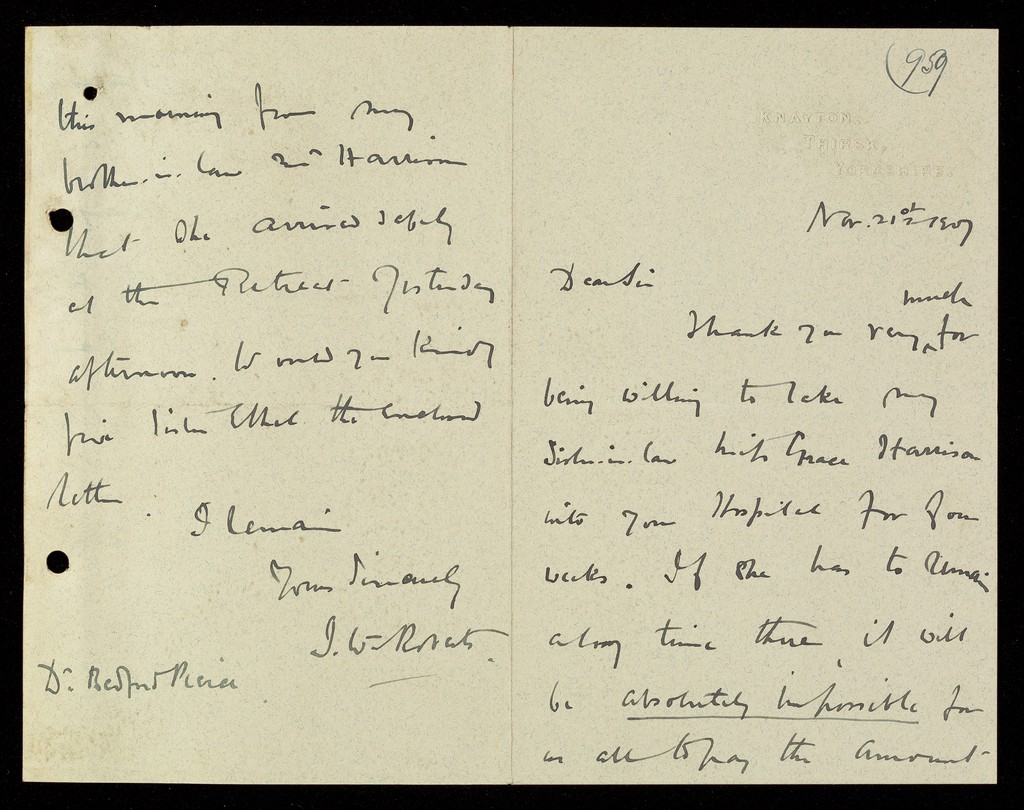 (959)
KNAYTON,
THIRSK,
YORKSHIRE.
Nov. 21st 1907
Dear Sir
Thank you very much for
being willing to take my
Sister-in-law Miss Grace Harrison
into your Hospital for four
weeks. If she has to remain
a long time there, it will
be absolutely impossible for
us all to pay the amount
this morning from my
brother-in-law Mr Harrison
that she arrived safely
at the Retreat yesterday
afternoon. Would you kindly
give Sister Ethel the enclosed
letter.
I remain
Yours Sincerely
J. W. Roberts.
Dr. Bedford Pierce